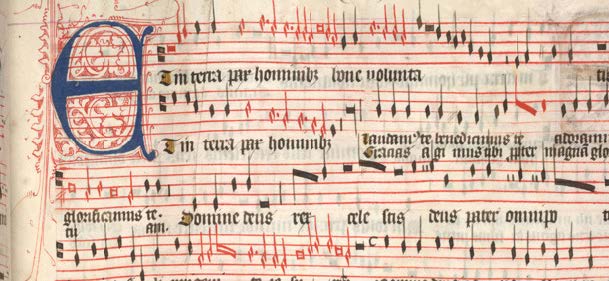 E
T in terra pax hominibz bone volunta
T in terra pax hominibz Laudamꝰ te benedicimus te
Gracias a gi mus tibi ꝓpter magnā glo
glorificamus te. Domine deus rex cele stis deus pater omnipo
am.